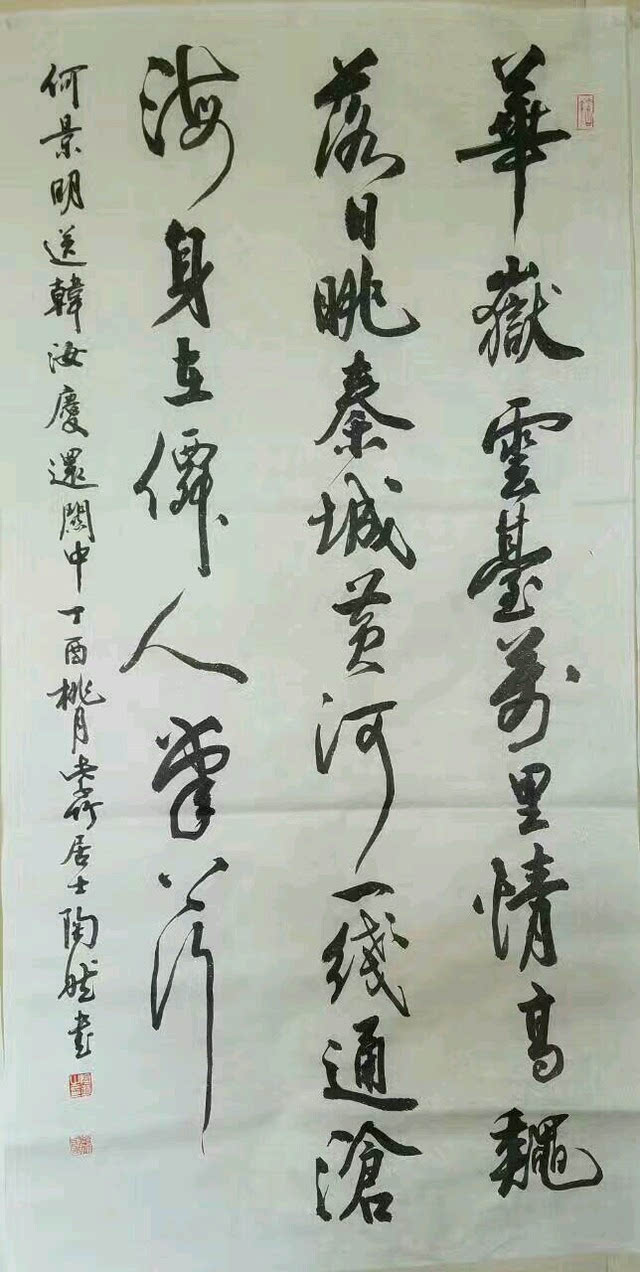 華嶽雲臺萬里情高龝
落日眺秦城黄河一綫通滄
海身在僊人掌上行
何景明送韓汝慶還關中丁酉桃月竹居士陶然書